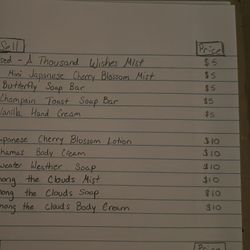 Sell Price
sed - A Thousand Wishes Mist $5
Mini Japanese Cherry Blossom Mist $5
Butterfly Soap Bar $5
Champain Toast Soap Bar $5
Vanilla Hand Cream $5
apanese Cherry Blossom Lotion $10
ahamas Body Cream $10
weater Weather Soap $10
mong the Clouds Mist $10
mong the Clouds Soap $10
mong the Clouds Body Cream $10
Price